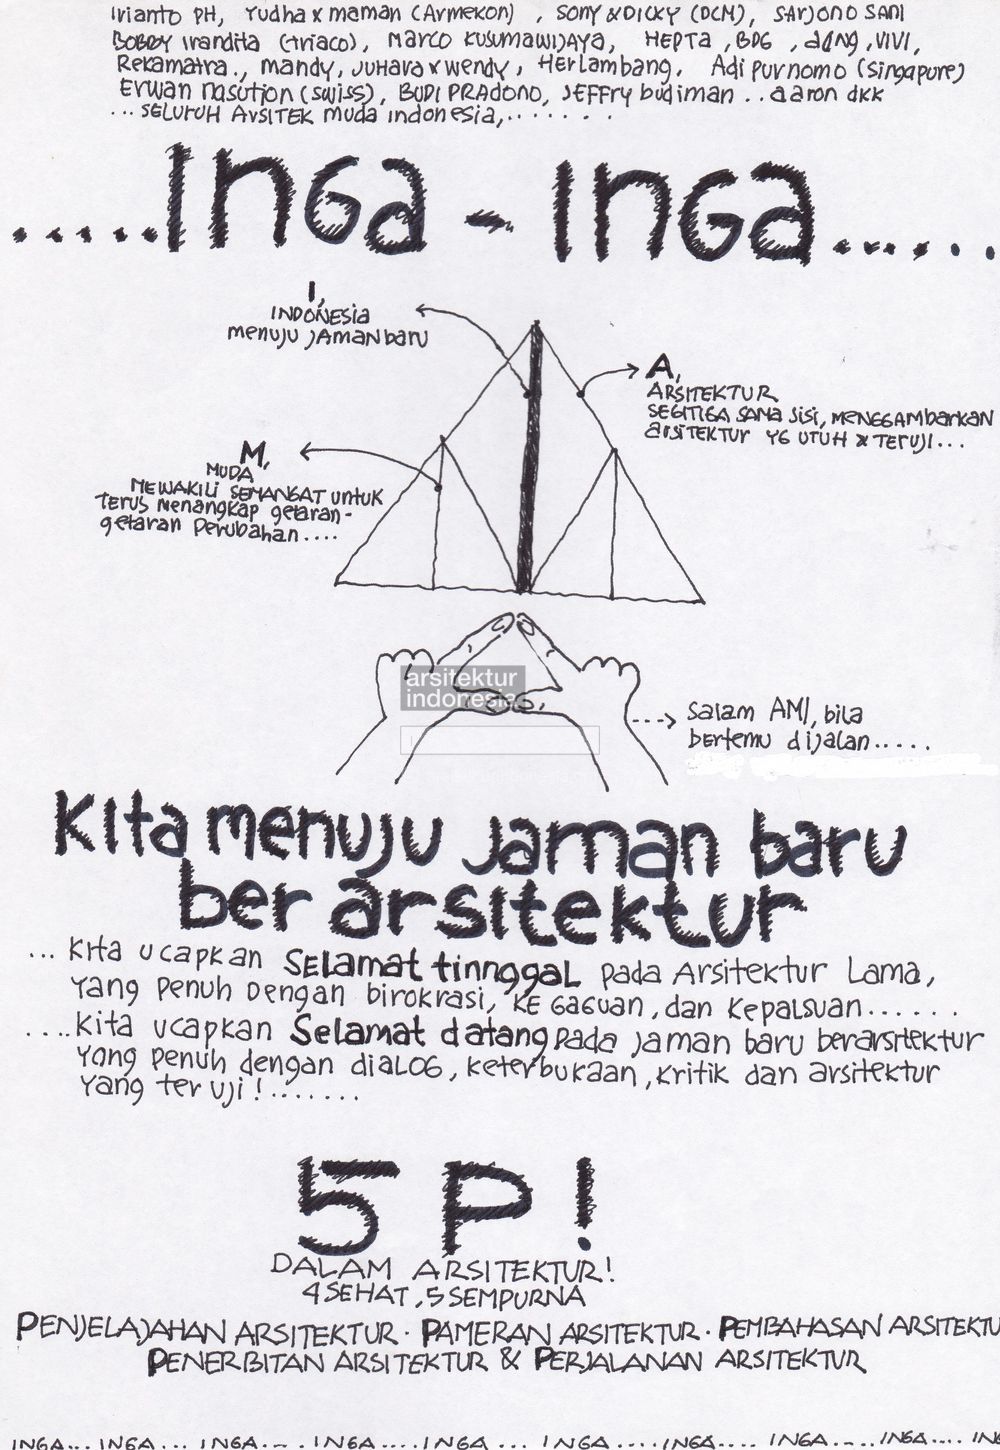 Irianto PH, Yudha x maman (Armekon) , SONY & DICKY (DCM), SARJONO SANI
BOBBY Irandita (triaco), Marco KUSUMAWIJAYA, HEPTA , BDG , adng, VIVI,
Rekamatra., mandy, JUHARA x wendy, HERLAMBANG, Adi PURNOMO (singapure)
Erwan NASUTION (SWISS), BUDI PRADONO, JEFFRY budiman .. aaron dkk
... SELURUH ARSITEK muda indonesia,.......
.....INGa - INGa......
I,
INDONESIA
menuju JAMAN baru
A,
ARSITEKTUR
SEGITIGA SAMA SISI, MENGGAMBARKAN
arSITEKTUR YG UTUH & TERUJI...
M,
MUDA
MEWAKILI SEMANGAT untuk
TERUS menangkap getaran-
getaran perubahan....
arsitektur
indonesia
Salam AMI, bila
bertemu dijalan.....
Kita menuju jaman baru
ber arsitektur
... Kita ucapkan SELamat tinnggaL pada Arsitektur Lama,
yang penuh Dengan birokrasi, KEGAGUAN, dan Kepalsuan......
....Kita ucapkan Selamat datang pada jaman baru berarsitektur
yang penuh dengan diaLOG, keterbukaan, kritik dan arsitektur
yang ter uji!.......
5 P!
DALAM ARSITEKTUR!
4 SEHAT, 5 SEMPURNA
PENJELAJAHAN ARSITEKTUR · PAMERAN ARSITEKTUR · PEMBAHASAN ARSITEKTU
PENERBITAN ARSITEKTUR & PERJALANAN ARSITEKTUR
INGA... INGA... INGA.... INGA....INGA ... INGA.... INGA... INGA..... INGA... IN